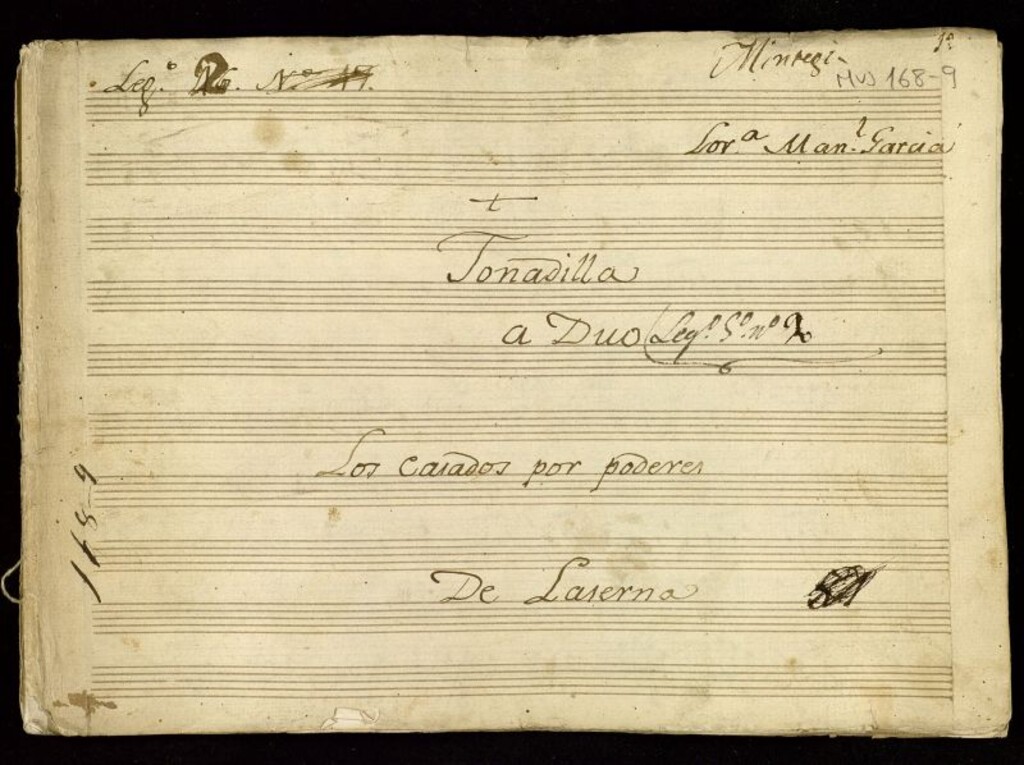 Leg.º 2 Nº 17.
Mintegi-
1ª
MUS 168-9
Lor.ª Man.l Garcia
+
Tonadilla
a Duo Leg.º 5.º nº 2
Los casados por poderes
168-9
De Laserna